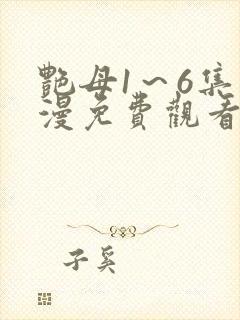 艷母1～6集
漫免費觀看
子奚